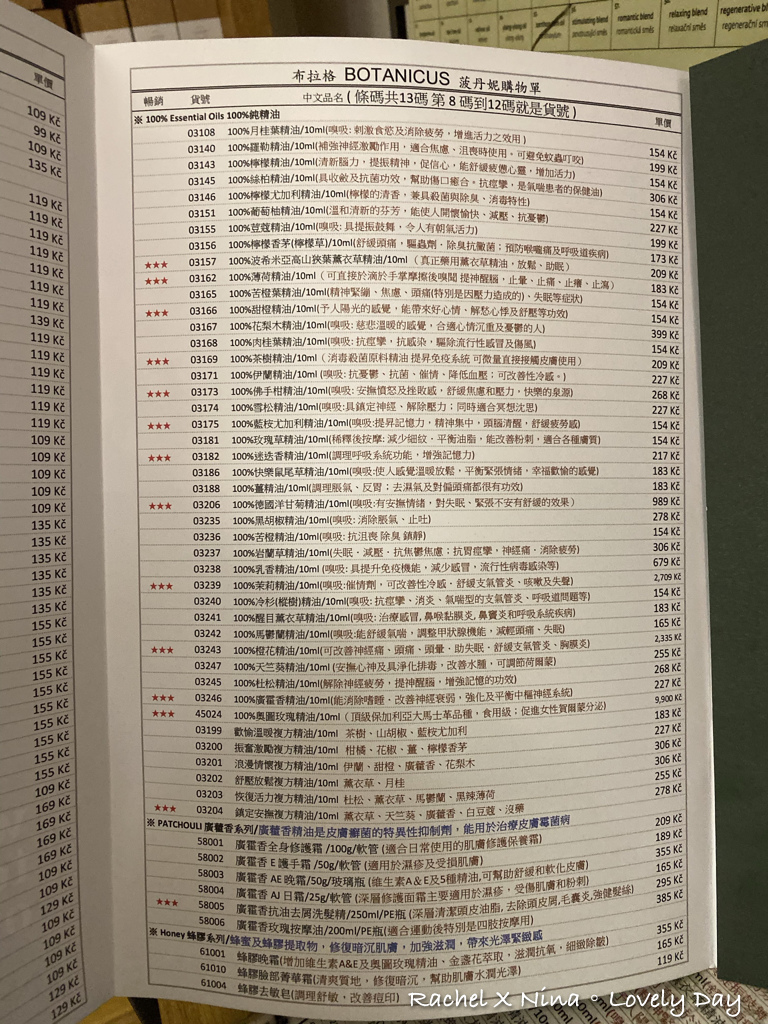 單價
109 Kč
99 Kč
109 Kč
135 Kč
119 Kč
119 Kč
119 Kč
119 Kč
119 Kč
119 Kč
119 Kč
139 Kč
119 Kč
119 Kč
119 Kč
119 Kč
119 Kč
119 Kč
109 Kč
109 Kč
109 Kč
109 Kč
109 Kč
135 Kč
135 Kč
135 Kč
135 Kč
135 Kč
135 Kč
155 Kč
155 Kč
155 Kč
155 Kč
155 Kč
155 Kč
155 Kč
155 Kč
155 Kč
109 Kč
169 Kč
169 Kč
169 Kč
169 Kč
109 Kč
109 Kč
129 Kč
109 Kč
109 Kč
109 Kč
129 Kč
129 Kč
stimulating blend
romantic blend
romantická směs
relaxing blend
relaxační směs
regenerative bl
regenerační směs
布拉格 BOTANICUS 菠丹妮購物單
暢銷 貨號 中文品名 ( 條碼共13碼 第 8 碼到12碼就是貨號 ) 單價
※ 100% Essential Oils 100%純精油
03108 100%月桂葉精油/10ml(嗅吸: 刺激食慾及消除疲勞，增進活力之效用 ) 154 Kč
03140 100%羅勒精油/10ml(補強神經激勵作用，適合焦慮、沮喪時使用。可避免蚊蟲叮咬) 199 Kč
03143 100%檸檬精油/10ml(清新腦力，提振精神，促信心，能舒緩疲憊心靈，增加活力) 154 Kč
03145 100%絲柏精油/10ml(具收斂及抗菌功效，幫助傷口癒合。抗痙攣，是氣喘患者的保健油) 306 Kč
03146 100%檸檬尤加利精油/10ml(檸檬的清香，兼具殺菌與除臭、消毒特性) 154 Kč
03151 100%葡萄柚精油/10ml(溫和清新的芬芳，能使人開懷愉快、減壓、抗憂鬱) 227 Kč
03155 100%荳蔻精油/10ml(嗅吸: 具提振鼓舞，令人有朝氣活力) 199 Kč
03156 100%檸檬香茅(檸檬草)/10ml(舒緩頭痛，驅蟲劑．除臭抗黴菌；預防喉嚨痛及呼吸道疾病) 173 Kč
★★★ 03157 100%波希米亞高山狹葉薰衣草精油/10ml（真正藥用薰衣草精油，放鬆、助眠） 209 Kč
★★★ 03162 100%薄荷精油/10ml（可直接於滴於手掌摩擦後嗅聞 提神醒腦，止暈、止痛、止癢、止瀉) 183 Kč
03165 100%苦橙葉精油/10ml(精神緊繃、焦慮、頭痛(特別是因壓力造成的)、失眠等症狀) 154 Kč
★★★ 03166 100%甜橙精油/10ml(予人陽光的感覺，能帶來好心情、解愁心悸及舒壓等功效) 154 Kč
03167 100%花梨木精油/10ml(嗅吸: 慈悲溫暖的感覺，合適心情沉重及憂鬱的人) 399 Kč
03168 100%肉桂葉精油/10ml(嗅吸: 抗痙攣、抗感染，驅除流行性感冒及傷風) 154 Kč
★★★ 03169 100%茶樹精油/10ml（消毒殺菌原料精油 提昇免疫系統 可微量直接接觸皮膚使用） 209 Kč
03171 100%伊蘭精油/10ml(嗅吸: 抗憂鬱、抗菌、催情、降低血壓；可改善性冷感。) 227 Kč
★★★ 03173 100%佛手柑精油/10ml(嗅吸: 安撫憤怒及挫敗感，舒緩焦慮和壓力，快樂的泉源) 268 Kč
03174 100%雪松精油/10ml(嗅吸:具鎮定神經、解除壓力；同時適合冥想沈思) 227 Kč
★★★ 03175 100%藍桉尤加利精油/10ml(嗅吸:提昇記憶力，精神集中，頭腦清醒，舒緩疲勞感) 154 Kč
03181 100%玫瑰草精油/10ml(稀釋後按摩: 減少細紋，平衡油脂，能改善粉刺，適合各種膚質) 154 Kč
★★★ 03182 100%迷迭香精油/10ml(調理呼吸系統功能，增強記憶力) 217 Kč
03186 100%快樂鼠尾草精油/10ml(嗅吸:使人感覺溫暖放鬆，平衡緊張情緒，幸福歡愉的感覺) 183 Kč
03188 100%薑精油/10ml(調理脹氣、反胃；去濕氣及對偏頭痛都很有功效) 183 Kč
★★★ 03206 100%德國洋甘菊精油/10ml(嗅吸:有安撫情緒，對失眠、緊張不安有舒緩的效果） 989 Kč
03235 100%黑胡椒精油/10ml(嗅吸: 消除脹氣、止吐) 278 Kč
03236 100%苦橙精油/10ml(嗅吸: 抗沮喪 除臭 鎮靜) 154 Kč
03237 100%岩蘭草精油/10ml(失眠．減壓．抗焦鬱焦慮；抗胃痙攣，神經痛．消除疲勞) 306 Kč
03238 100%乳香精油/10ml (嗅吸：具提升免疫機能，減少感冒．流行性病毒感染等) 679 Kč
★★★ 03239 100%茉莉精油/10ml(嗅吸:催情劑，可改善性冷感．舒緩支氣管炎、咳嗽及失聲) 2,709 Kč
03240 100%冷杉(樅樹)精油/10ml(嗅吸: 抗痙攣、消炎、氣喘型的支氣管炎、呼吸道問題等) 154 Kč
03241 100%醒目薰衣草精油/10ml(嗅吸: 治療感冒, 鼻喉黏膜炎, 鼻竇炎和呼吸系統疾病) 183 Kč
03242 100%馬鬱蘭精油/10ml(嗅吸:能舒緩氣喘，調整甲狀腺機能，減輕頭痛、失眠) 165 Kč
★★★ 03243 100%橙花精油/10ml(可改善神經痛．頭痛．頭暈．助失眠．舒緩支氣管炎、胸膜炎) 2,335 Kč
03247 100%天竺葵精油/10ml (安撫心神及具淨化排毒，改善水腫，可調節荷爾蒙) 255 Kč
03245 100%杜松精油/10ml(解除神經疲勞，提神醒腦，增強記憶的功效) 268 Kč
★★★ 03246 100%廣藿香精油/10ml(能消除嗜睡．改善神經衰弱，強化及平衡中樞神經系統) 227 Kč
★★★ 45024 100%奧圖玫瑰精油/10ml（頂級保加利亞大馬士革品種，食用級；促進女性賀爾蒙分泌) 9,900 Kč
03199 歡愉溫暖複方精油/10ml 茶樹、山胡椒、藍桉尤加利 183 Kč
03200 振奮激勵複方精油/10ml 柑橘、花椒、薑、檸檬香茅 227 Kč
03201 浪漫情懷複方精油/10ml 伊蘭、甜橙、廣藿香、花梨木 306 Kč
03202 舒壓放鬆複方精油/10ml 薰衣草、月桂 306 Kč
03203 恢復活力複方精油/10ml 杜松、薰衣草、馬鬱蘭、黑辣薄荷 255 Kč
★★★ 03204 鎮定安撫複方精油/10ml 薰衣草、天竺葵、廣藿香、白豆蔻、沒藥 278 Kč
※ PATCHOULI 廣藿香系列/廣藿香精油是皮膚癬菌的特異性抑制劑，能用於治療皮膚黴菌病
58001 廣藿香全身修護霜 /100g/軟管 (適合日常使用的肌膚修護保養霜) 209 Kč
58002 廣藿香 E 護手霜 /50g/軟管 (適用於濕疹及受損肌膚) 189 Kč
58003 廣藿香 AE 晚霜/50g/玻璃瓶 (維生素A＆E及5種精油,可幫助舒緩和軟化皮膚) 355 Kč
58004 廣藿香 AJ 日霜/25g/軟管 (深層修護面霜主要適用於濕疹、受傷肌膚和粉刺) 165 Kč
★★★ 58005 廣藿香抗油去屑洗髮精/250ml/PE瓶 (深層清潔頭皮油脂, 去除頭皮屑,毛囊炎,強健髮絲) 295 Kč
58006 廣藿香玫瑰按摩油/200ml/PE瓶(適合運動後特別是四肢按摩用) 385 Kč
※ Honey 蜂膠系列/蜂蜜及蜂膠提取物，修復暗沉肌膚，加強滋潤，帶來光澤緊緻感
61001 蜂膠晚霜(增加維生素A&E及奧圖玫瑰精油、金盞花萃取、滋潤抗氧，細緻除皺) 355 Kč
61010 蜂膠臉部菁華霜(清爽質地，修復暗沉，幫助肌膚水潤光澤) 165 Kč
61004 蜂膠去敏皂(調理舒敏，改善痘印) 119 Kč
Rachel X Nina。Lovely Day